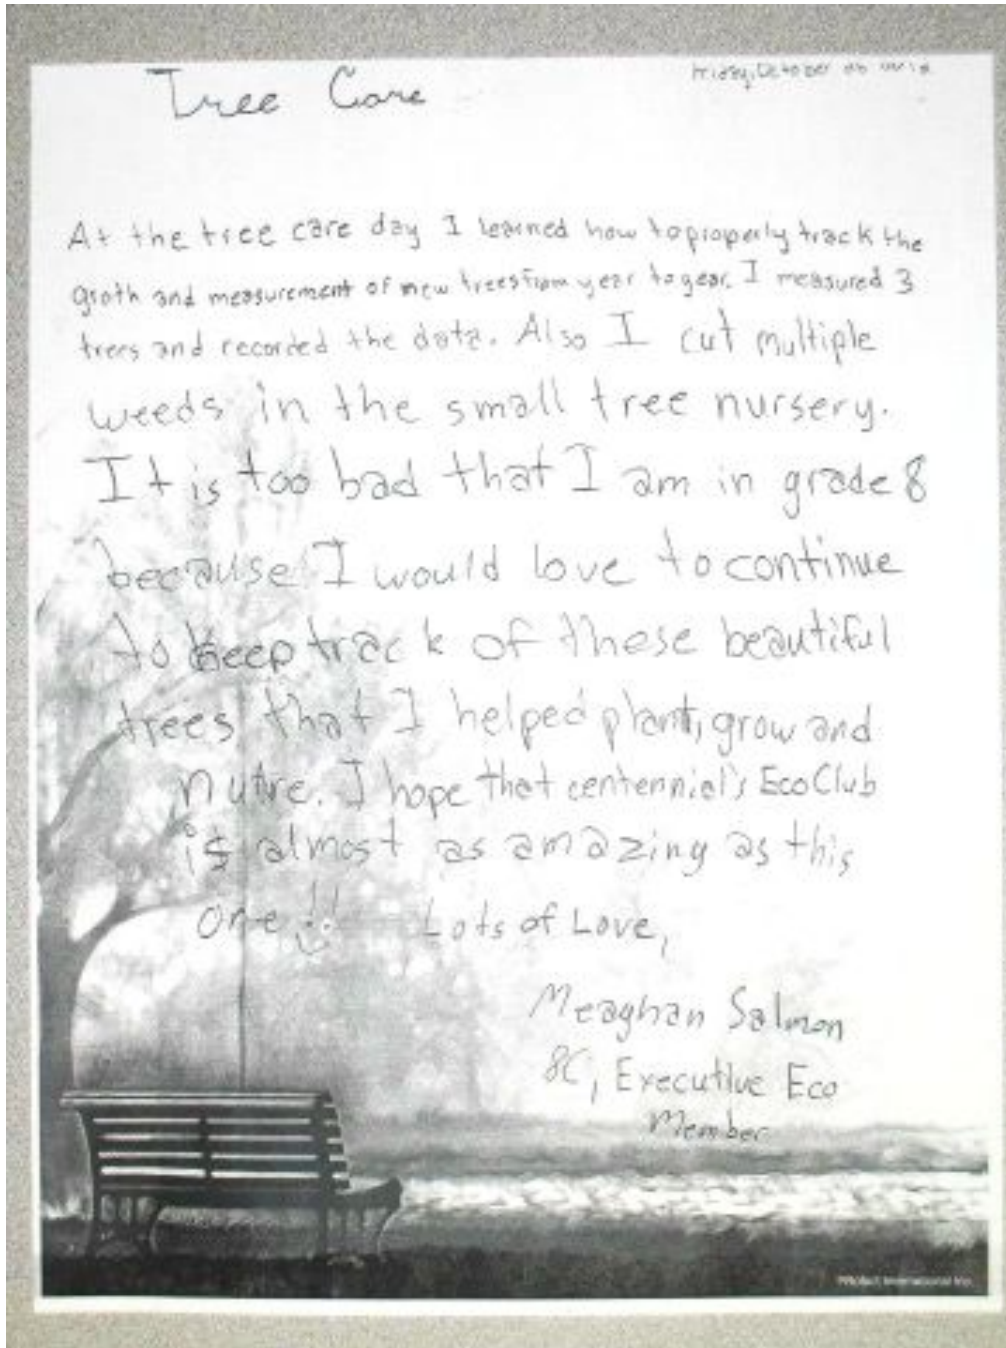 Tree Care
Friday, October
At the tree care day I learned how to properly track the
groth and measurement of new trees from year to year. I measured 3
trees and recorded the data. Also I cut multiple
weeds in the small tree nursery.
It is too bad that I am in grade 8
because I would love to continue
to keep track of these beautiful
trees that I helped plant, grow and
nutre. I hope that centennial's EcoClub
is almost as amazing as this
one!! Lots of Love,
Meaghan Salmon
8C, Executive Eco
Member
International Inc.